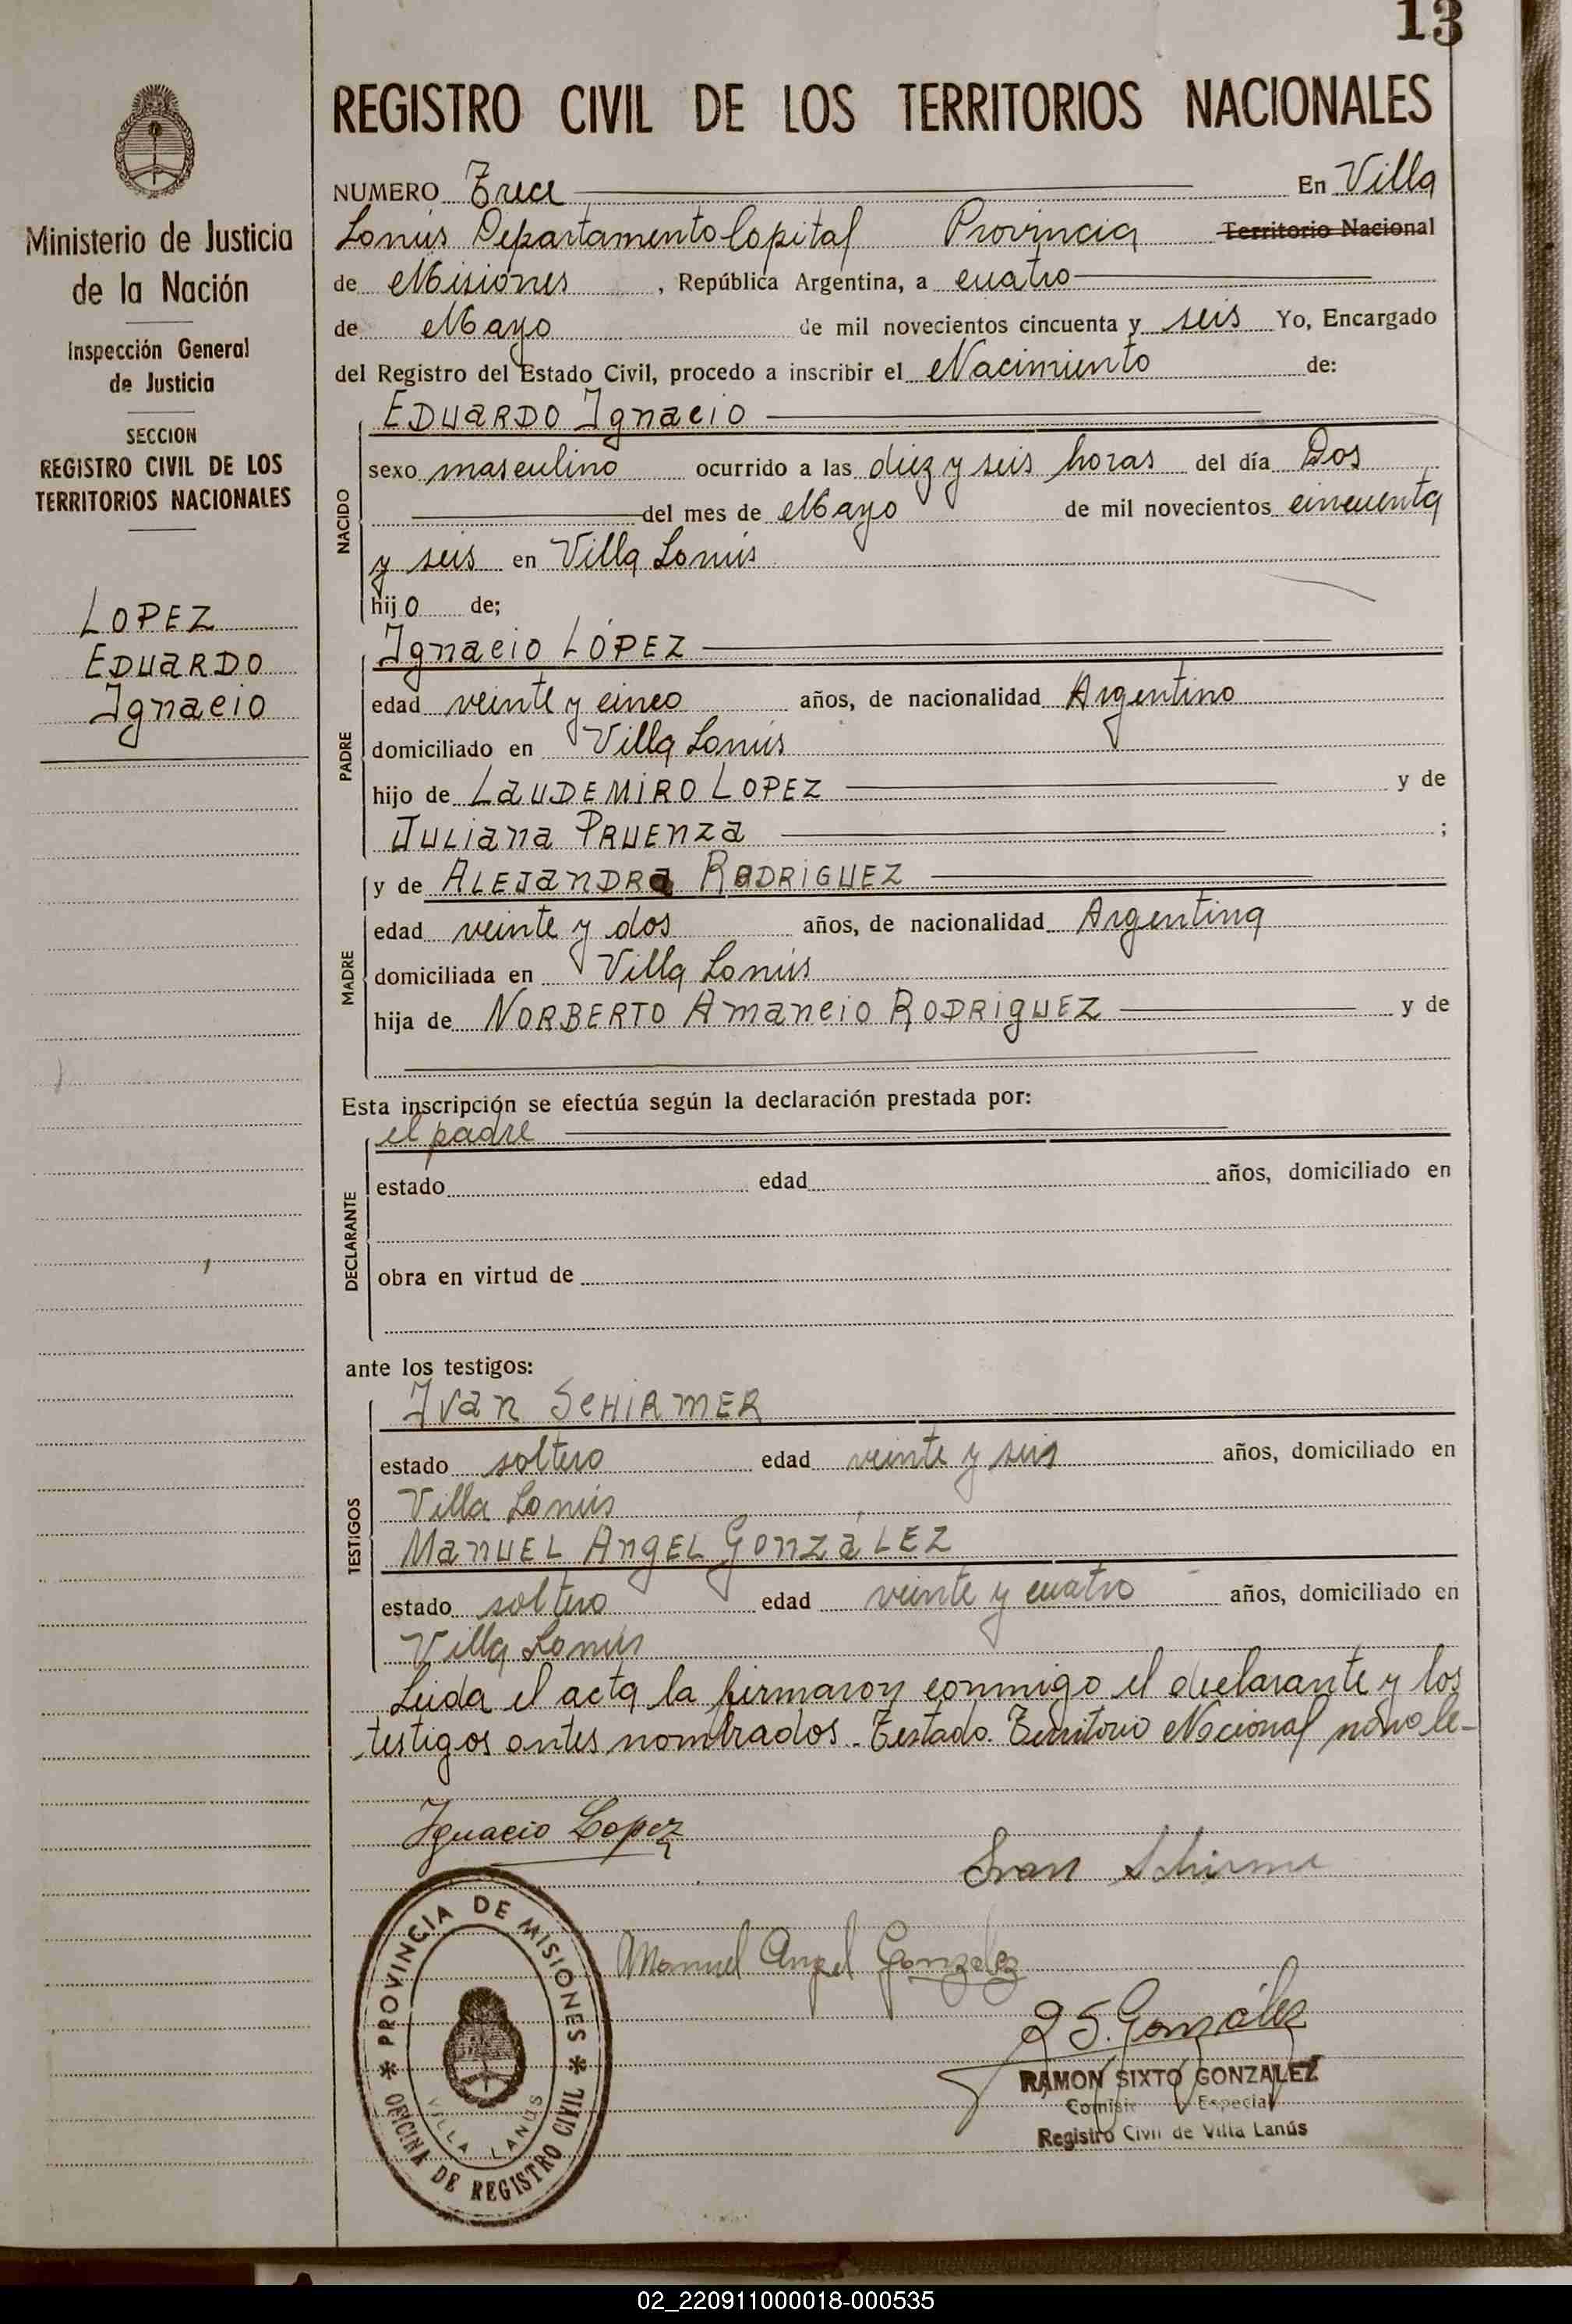 13
REGISTRO CIVIL DE LOS TERRITORIOS NACIONALES
Ministerio de Justicia
de la Nación
Inspección General
de Justicia
SECCION
REGISTRO CIVIL DE LOS
TERRITORIOS NACIONALES
LOPEZ
EDUARDO
Ignacio
NUMERO Trece En Villa
Lanús Departamento Capital Provincia Territorio Nacional
de Misiones, República Argentina, a cuatro
de Mayo de mil novecientos cincuenta y seis Yo, Encargado
del Registro del Estado Civil, procedo a inscribir el Nacimiento de:
NACIDO
EDUARDO Ignacio
sexo masculino ocurrido a las diez y seis horas del día Dos
del mes de Mayo de mil novecientos cincuenta
y seis en Villa Lanús
hijo de;
PADRE
Ignacio LÓPEZ
edad veinte y cinco años, de nacionalidad Argentino
domiciliado en Villa Lanús
hijo de LAUDEMIRO LOPEZ y de
JULIANA PRUENZA ;
MADRE
y de ALEJANDRA RODRIGUEZ
edad veinte y dos años, de nacionalidad Argentina
domiciliada en Villa Lanús
hija de NORBERTO Amancio RODRIGUEZ y de
Esta inscripción se efectúa según la declaración prestada por:
DECLARANTE
el padre
estado edad años, domiciliado en
obra en virtud de
ante los testigos:
TESTIGOS
Ivan SCHIRMER
estado soltero edad veinte y seis años, domiciliado en
Villa Lanús
MANUEL ANGEL GONZÁLEZ
estado soltero edad veinte y cuatro años, domiciliado en
Villa Lanús
Leida el acta la firmaron conmigo el declarante y los
testigos antes nombrados. Testado. Territorio Nacional
Ignacio Lopez
Ivan Schirme
Manuel Angel Gonzalez
R S. González
RAMON SIXTO GONZALEZ
Especial
Registro Civil de Villa Lanús
PROVINCIA DE MISIONES
VILLA LANUS
OFICINA DE REGISTRO CIVIL
02_220911000018-000535